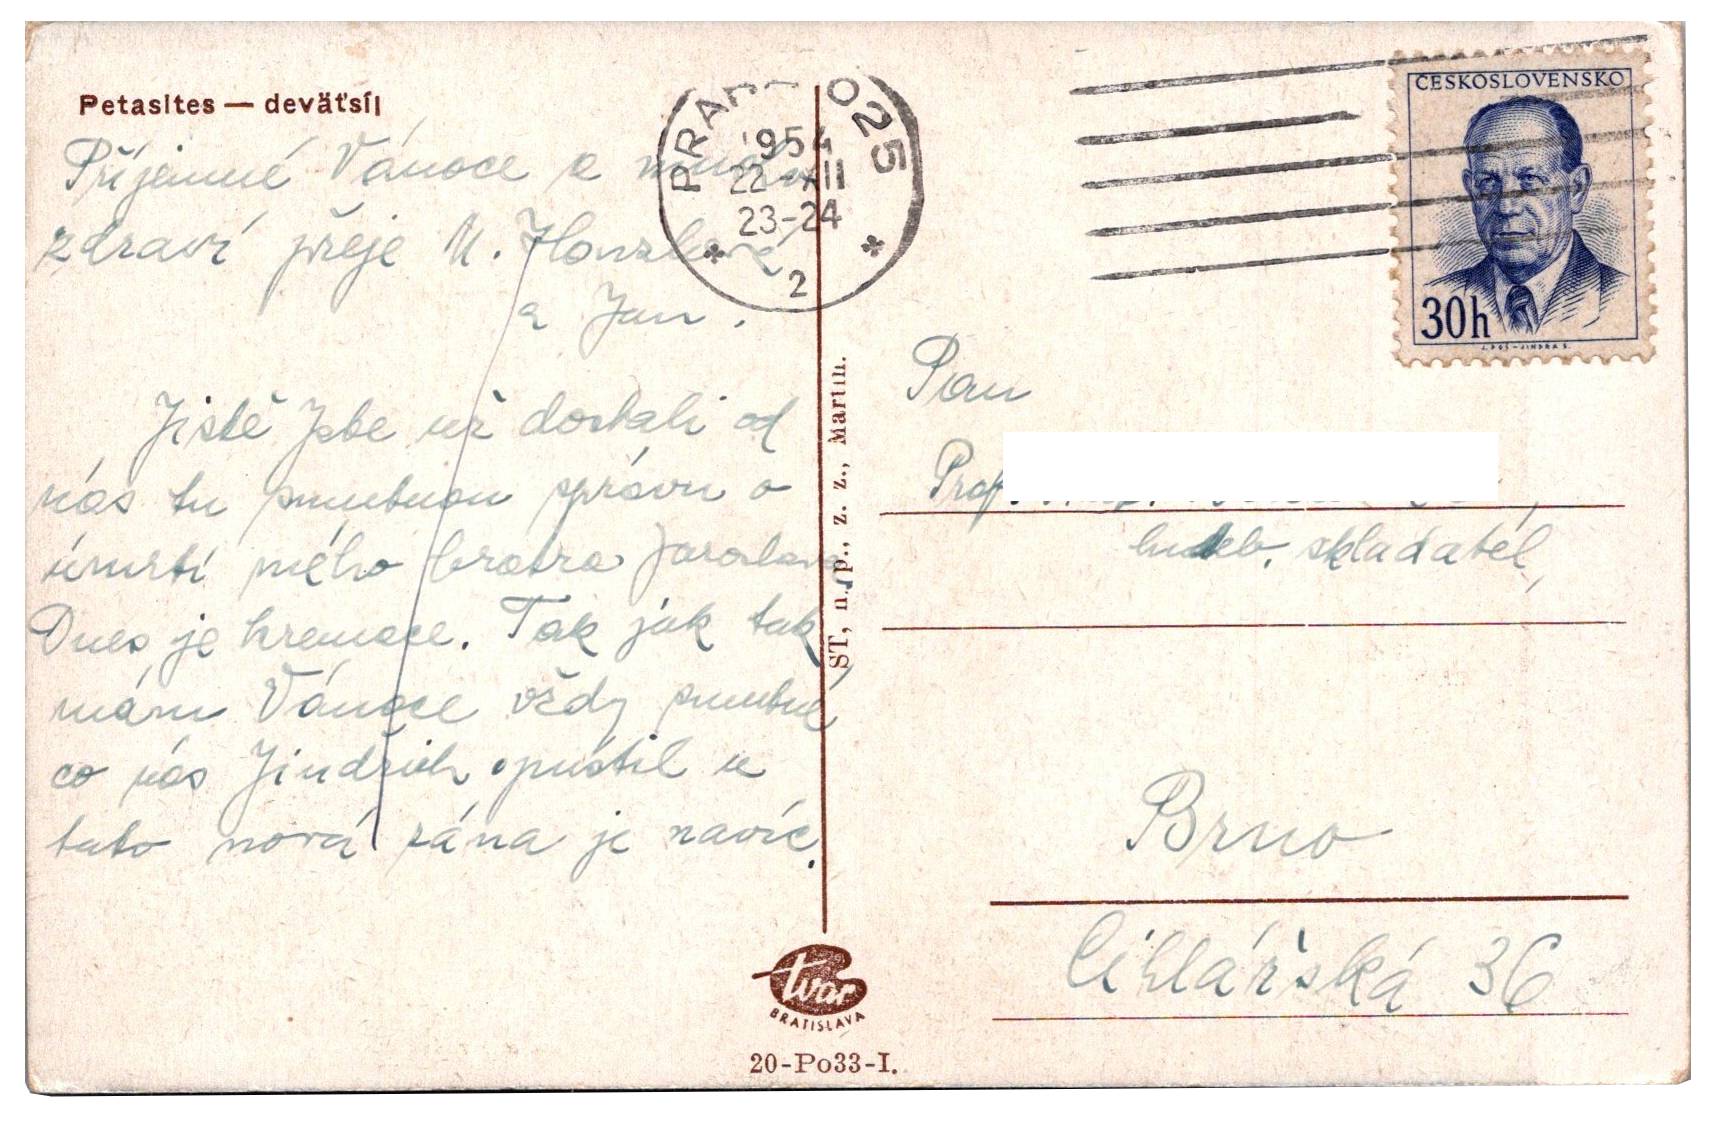 Petasites — deväťsíl
Příjemné Vánoce a mnoho
zdraví přeje M. Honzlová
a Jan.
Jistě jste už dostali od
nás tu smutnou zprávu o
úmrtí mého bratra Jaroslava.
Dnes je kremace. Tak jak tak
mám Vánoce vždy smutné,
co nás Jindřich opustil a
tato nová rána je navíc.
PRAHA 025
1954
22-XII
23-24
2
ČESKOSLOVENSKO
30h
Pan
Prof.
hudeb. skladatel,
Brno
Cihlářská 36
ST, n. p., z. z., Martin.
tvar
BRATISLAVA
20-Po33-I.